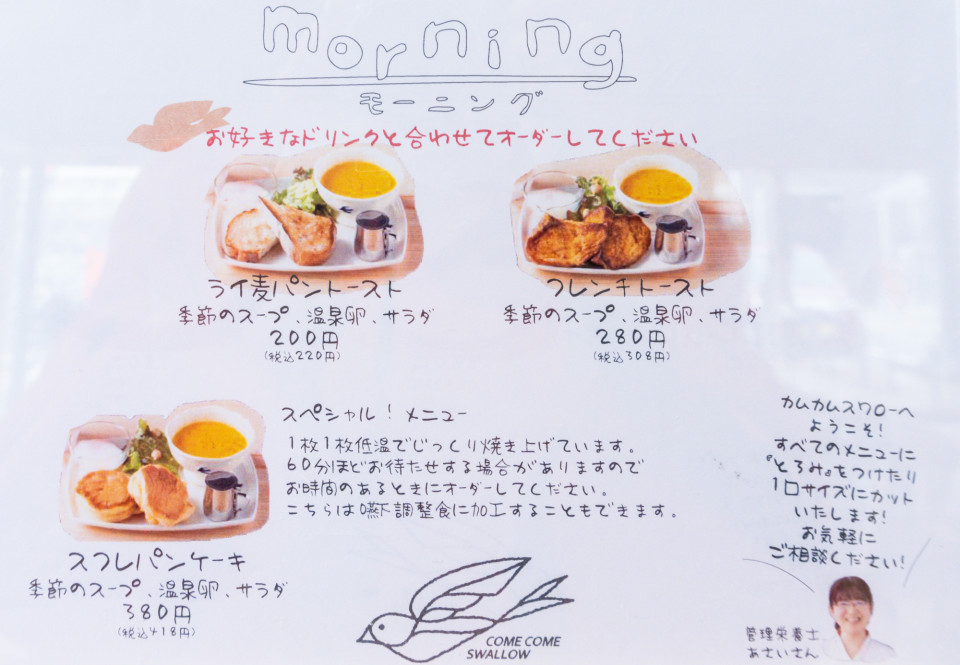 morning
モーニング
お好きなドリンクと合わせてオーダーしてください
ライ麦パントースト
季節のスープ、温泉卵、サラダ
200円
(税込220円)
フレンチトースト
季節のスープ、温泉卵、サラダ
280円
(税込308円)
スフレパンケーキ
季節のスープ、温泉卵、サラダ
380円
(税込418円)
スペシャル!メニュー
1枚1枚低温でじっくり焼き上げています。
60分ほどお待たせする場合がありますので
お時間のあるときにオーダーしてください。
こちらは嚥下調整食に加工することもできます。
カムカムスワローへ
ようこそ!
すべてのメニューに
『とろみ』をつけたり
1口サイズにカット
いたします!
お気軽に
ご相談ください!
管理栄養士
あさいさん
COME COME
SWALLOW